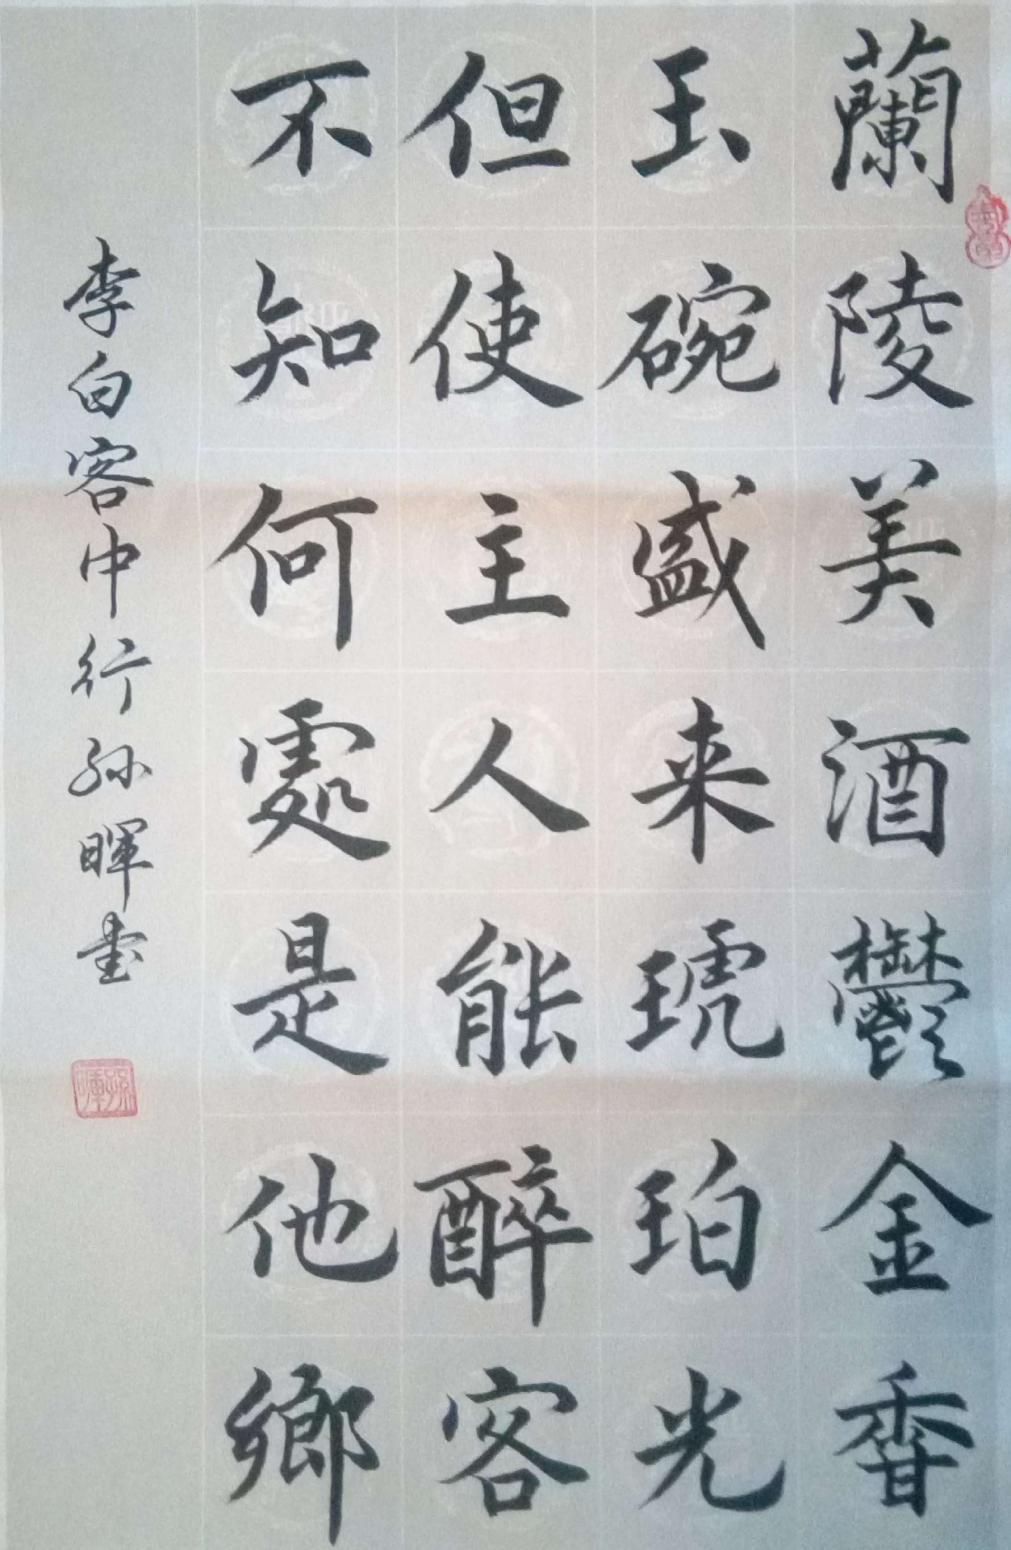 蘭陵美酒鬱金香
玉碗盛来琥珀光
但使主人能醉客
不知何處是他鄉
李白客中行孙暉书